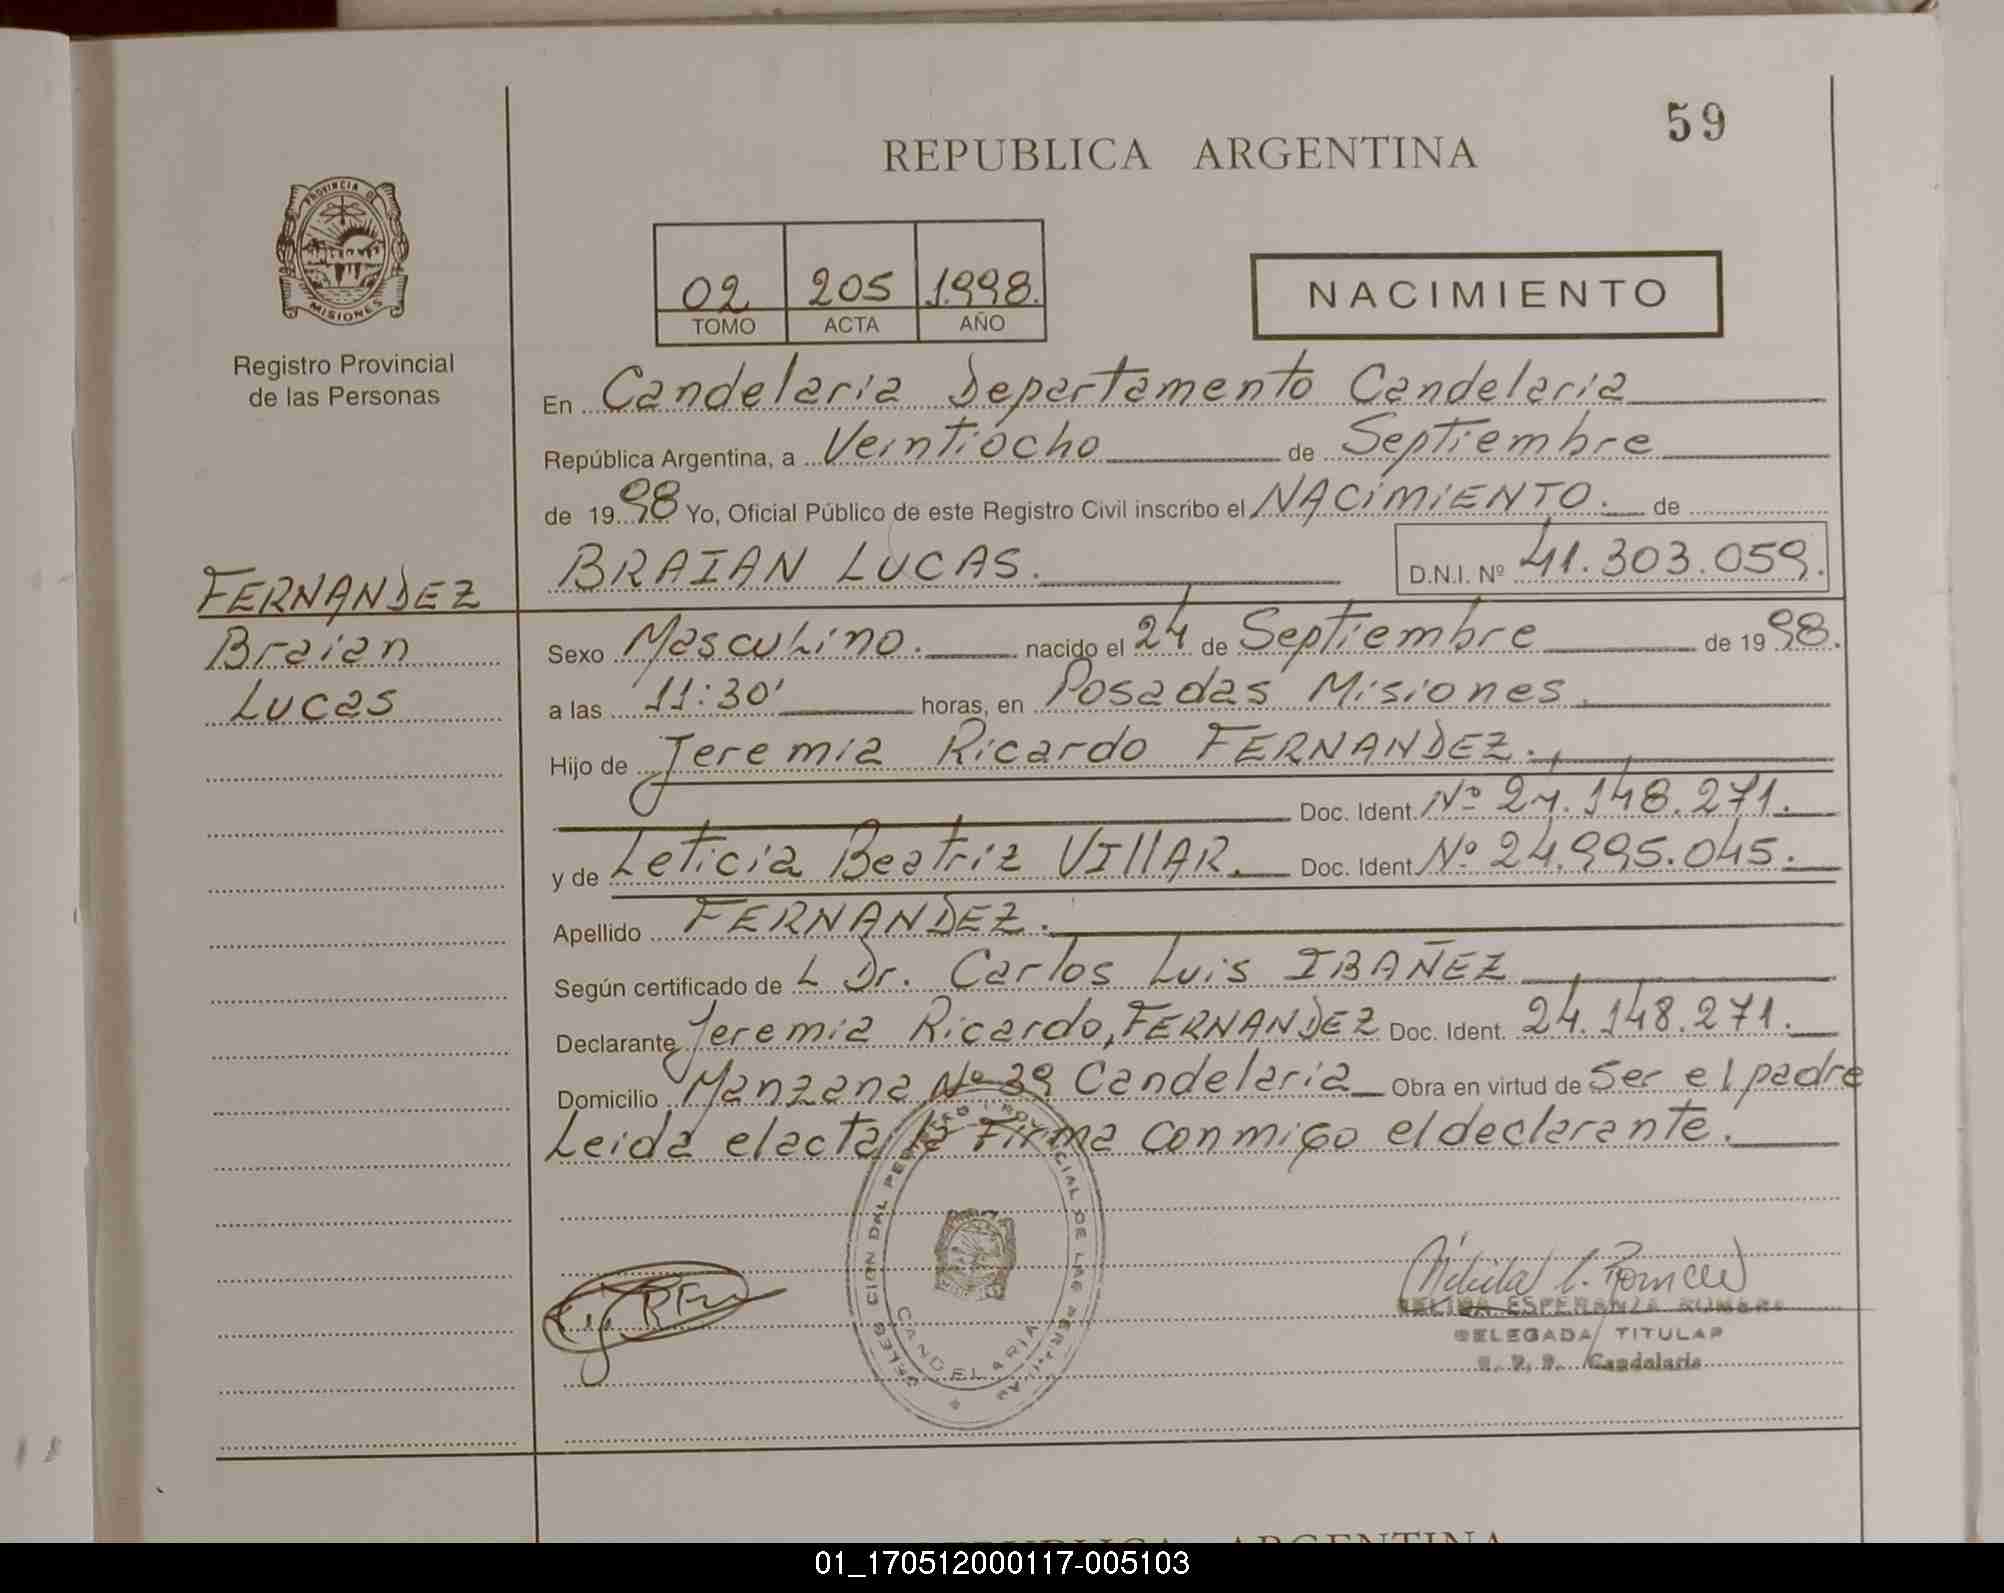 59
REPUBLICA ARGENTINA
PROVINCIA DE
MISIONES
Registro Provincial
de las Personas
02 205 1.998.
TOMO ACTA AÑO
NACIMIENTO
En Candelaria Departamento Candelaria
República Argentina, a Veintiocho de Septiembre
de 19 98 Yo, Oficial Público de este Registro Civil inscribo el NACIMIENTO. de
BRAIAN LUCAS. D.N.I. Nº 41.303.059.
FERNANDEZ
Braian
Lucas
Sexo Masculino. nacido el 24 de Septiembre de 19 98.
a las 11:30' horas, en Posadas Misiones.
Hijo de Jeremia Ricardo FERNANDEZ.
Doc. Ident. Nº 24.148.271.
y de Leticia Beatriz VIllAR. Doc. Ident. Nº 24.995.045.
Apellido FERNANDEZ.
Según certificado de L Dr. Carlos Luis IBAÑEZ
Declarante Jeremia Ricardo, FERNANDEZ Doc. Ident. 24.148.271.
Domicilio Manzana Nº 39 Candelaria Obra en virtud de Ser el padre
Leida el acta la Firma conmigo el declarante.
CANDELARIA
ESPERANZA ROMERO
DELEGADA TITULAR
Candelaria
REPUBLICA ARGENTINA
01_170512000117-005103